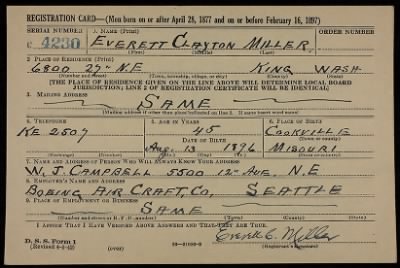 REGISTRATION CARD—(Men born on or after April 28, 1877 and on or before February 16, 1897)
SERIAL NUMBER 1. NAME (Print) ORDER NUMBER
4230 EVERETT CLAYTON MILLER
(First) (Middle) (Last)
2. PLACE OF RESIDENCE (Print)
6800 27TH N.E KING WASH
(Number and street) (Town, township, village, or city) (County) (State)
[THE PLACE OF RESIDENCE GIVEN ON THE LINE ABOVE WILL DETERMINE LOCAL BOARD
JURISDICTION; LINE 2 OF REGISTRATION CERTIFICATE WILL BE IDENTICAL]
3. MAILING ADDRESS
SAME
[Mailing address if other than place indicated on line 2. If same insert word same]
4. TELEPHONE 5. AGE IN YEARS 6. PLACE OF BIRTH
KE 2507 45 COOKVILLE
DATE OF BIRTH
Aug. 13 1896 MISOURI
(Exchange) (Number) (Mo.) (Day) (Yr.) (State or country)
7. NAME AND ADDRESS OF PERSON WHO WILL ALWAYS KNOW YOUR ADDRESS
W. J. CAMPBELL 5500 12TH AVE. N.E
8. EMPLOYER'S NAME AND ADDRESS
BOEING AIR CRAFT, CO, SEATTLE
9. PLACE OF EMPLOYMENT OR BUSINESS
SAME
(Number and street or R. F. D. number) (Town) (County) (State)
I AFFIRM THAT I HAVE VERIFIED ABOVE ANSWERS AND THAT THEY ARE TRUE.
D. S. S. Form 1 Everett C. Miller
(Revised 4-1-42) (over) (Registrant's signature)